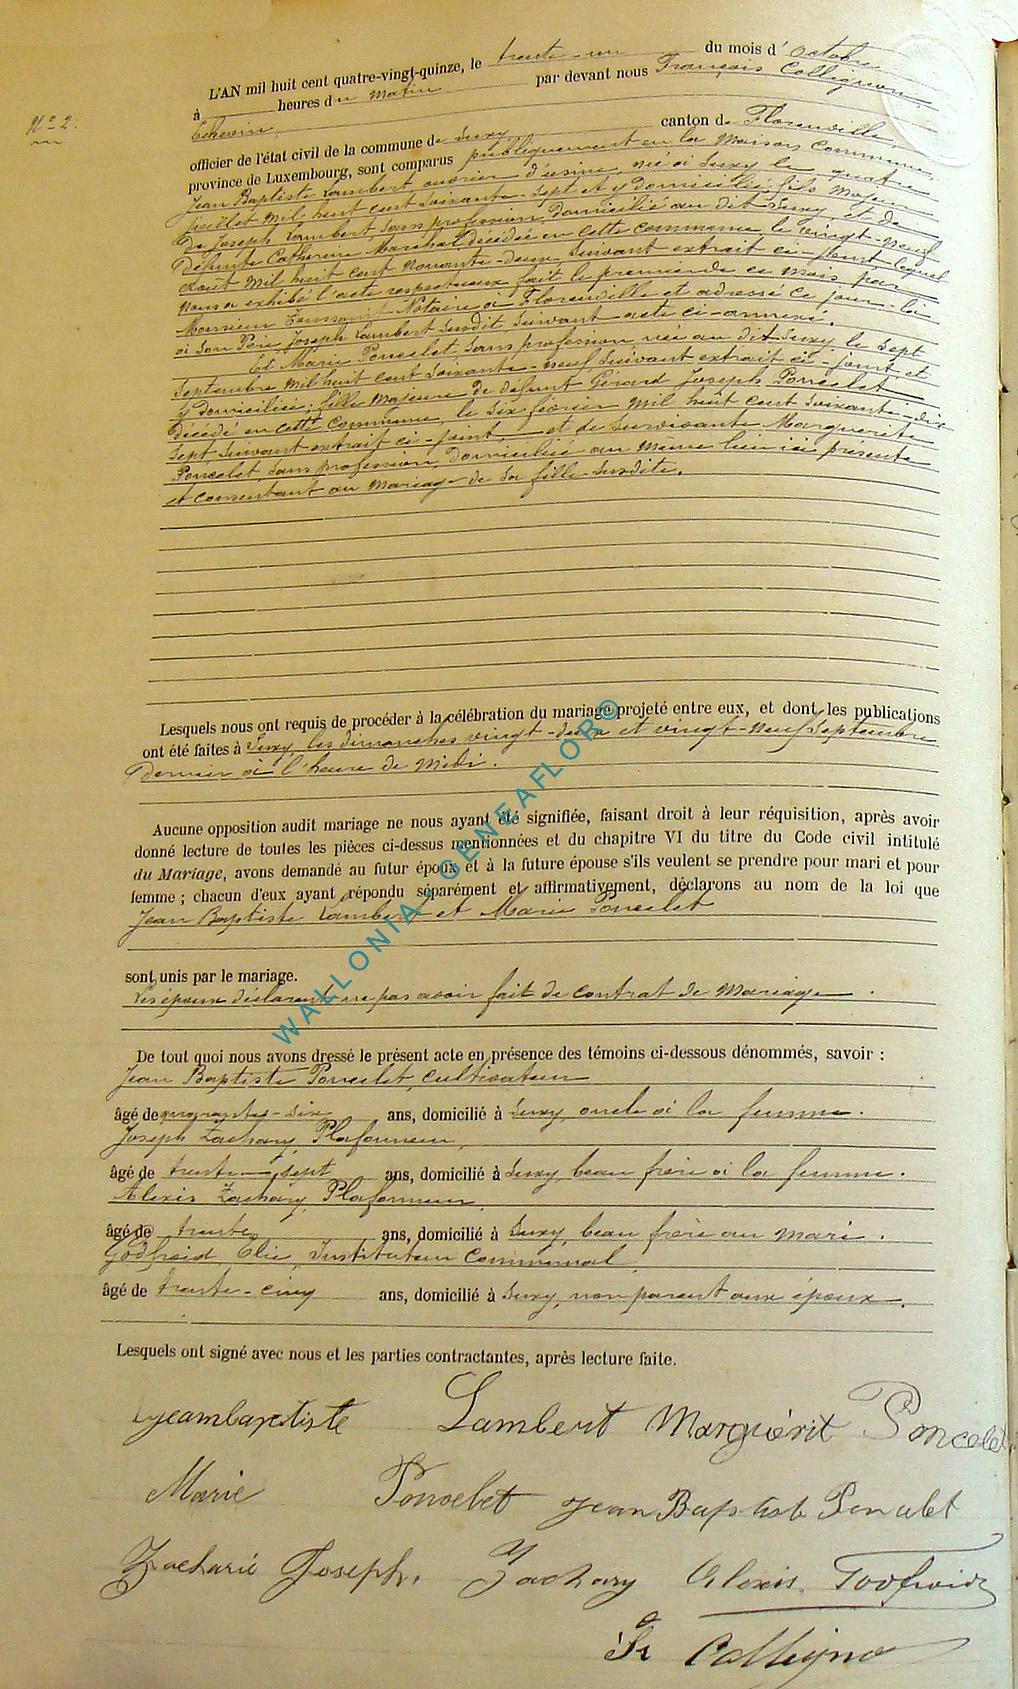 N° 2.
L'AN mil huit cent quatre-vingt-quinze, le trente-un du mois d'octobre
à heures du matin par devant nous François Collignon,
Echevin,
officier de l'état civil de la commune de Suxy canton de Florenville,
province de Luxembourg, sont comparus publiquement en la Maison Commune,
Jean Baptiste Lambert, ouvrier d'usine, né à Suxy le quatre
juillet mil huit cent soixante-sept et y domicilié, fils majeur
de Joseph Lambert, sans profession, domicilié au dit Suxy, et de
défunte Catherine Maréchal décédée en cette commune, le vingt-neuf
août mil huit cent nonante-deux suivant extrait ci-joint, lequel
nous a exhibé l'acte respectueux fait le premier de ce mois par
Monsieur Notaire à Florenville et adressé ce jour-là
à son Père Joseph Lambert susdit suivant acte ci-annexé.
Et Marie Poncelet, sans profession, née au dit Suxy le sept
Septembre mil huit cent soixante-neuf, suivant extrait ci-joint et
y domiciliée, fille majeure de défunt Gérard Joseph Poncelet
décédé en cette commune, le six février mil huit cent soixante-dix
sept suivant extrait ci-joint, et de survivante Marguerite
Poncelet, sans profession, domiciliée au même lieu ici présente
et consentant au mariage de sa fille susdite.
Lesquels nous ont requis de procéder à la célébration du mariage projeté entre eux, et dont les publications
ont été faites à Suxy, les dimanches vingt-deux et vingt-neuf Septembre
dernier à l'heure de Midi.
Aucune opposition audit mariage ne nous ayant été signifiée, faisant droit à leur réquisition, après avoir
donné lecture de toutes les pièces ci-dessus mentionnées et du chapitre VI du titre du Code civil intitulé
du Mariage, avons demandé au futur époux et à la future épouse s'ils veulent se prendre pour mari et pour
femme ; chacun d'eux ayant répondu séparément et affirmativement, déclarons au nom de la loi que
Jean Baptiste Lambert et Marie Poncelet
sont unis par le mariage.
Les époux déclarent ne pas avoir fait de contrat de mariage.
De tout quoi nous avons dressé le présent acte en présence des témoins ci-dessous dénommés, savoir :
Jean Baptiste Poncelet, cultivateur
âgé de quarante-six ans, domicilié à Suxy, oncle à la femme.
Joseph Zachary, Plafonneur,
âgé de trente-sept ans, domicilié à Suxy, beau frère à la femme.
Alexis Zachary, Plafonneur,
âgé de trente ans, domicilié à Suxy, beau frère au mari.
Godfroid, Elie, Instituteur Communal,
âgé de trente-cinq ans, domicilié à Suxy, non parent aux époux.
Lesquels ont signé avec nous et les parties contractantes, après lecture faite.
jeambaptiste Lambert Marguérit Poncelet
Marie Poncelet jean Baptiste Poncelet
Zacharie Joseph. Zachary Alexis Godfroid
Fr Collignon
WALLONIA GENEAFLOR©